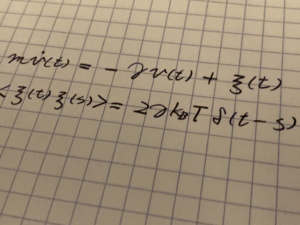 mv̇(t) = - γv(t) + ξ(t)
<ξ(t)ξ(s)>= 2γk_BT δ(t-s)